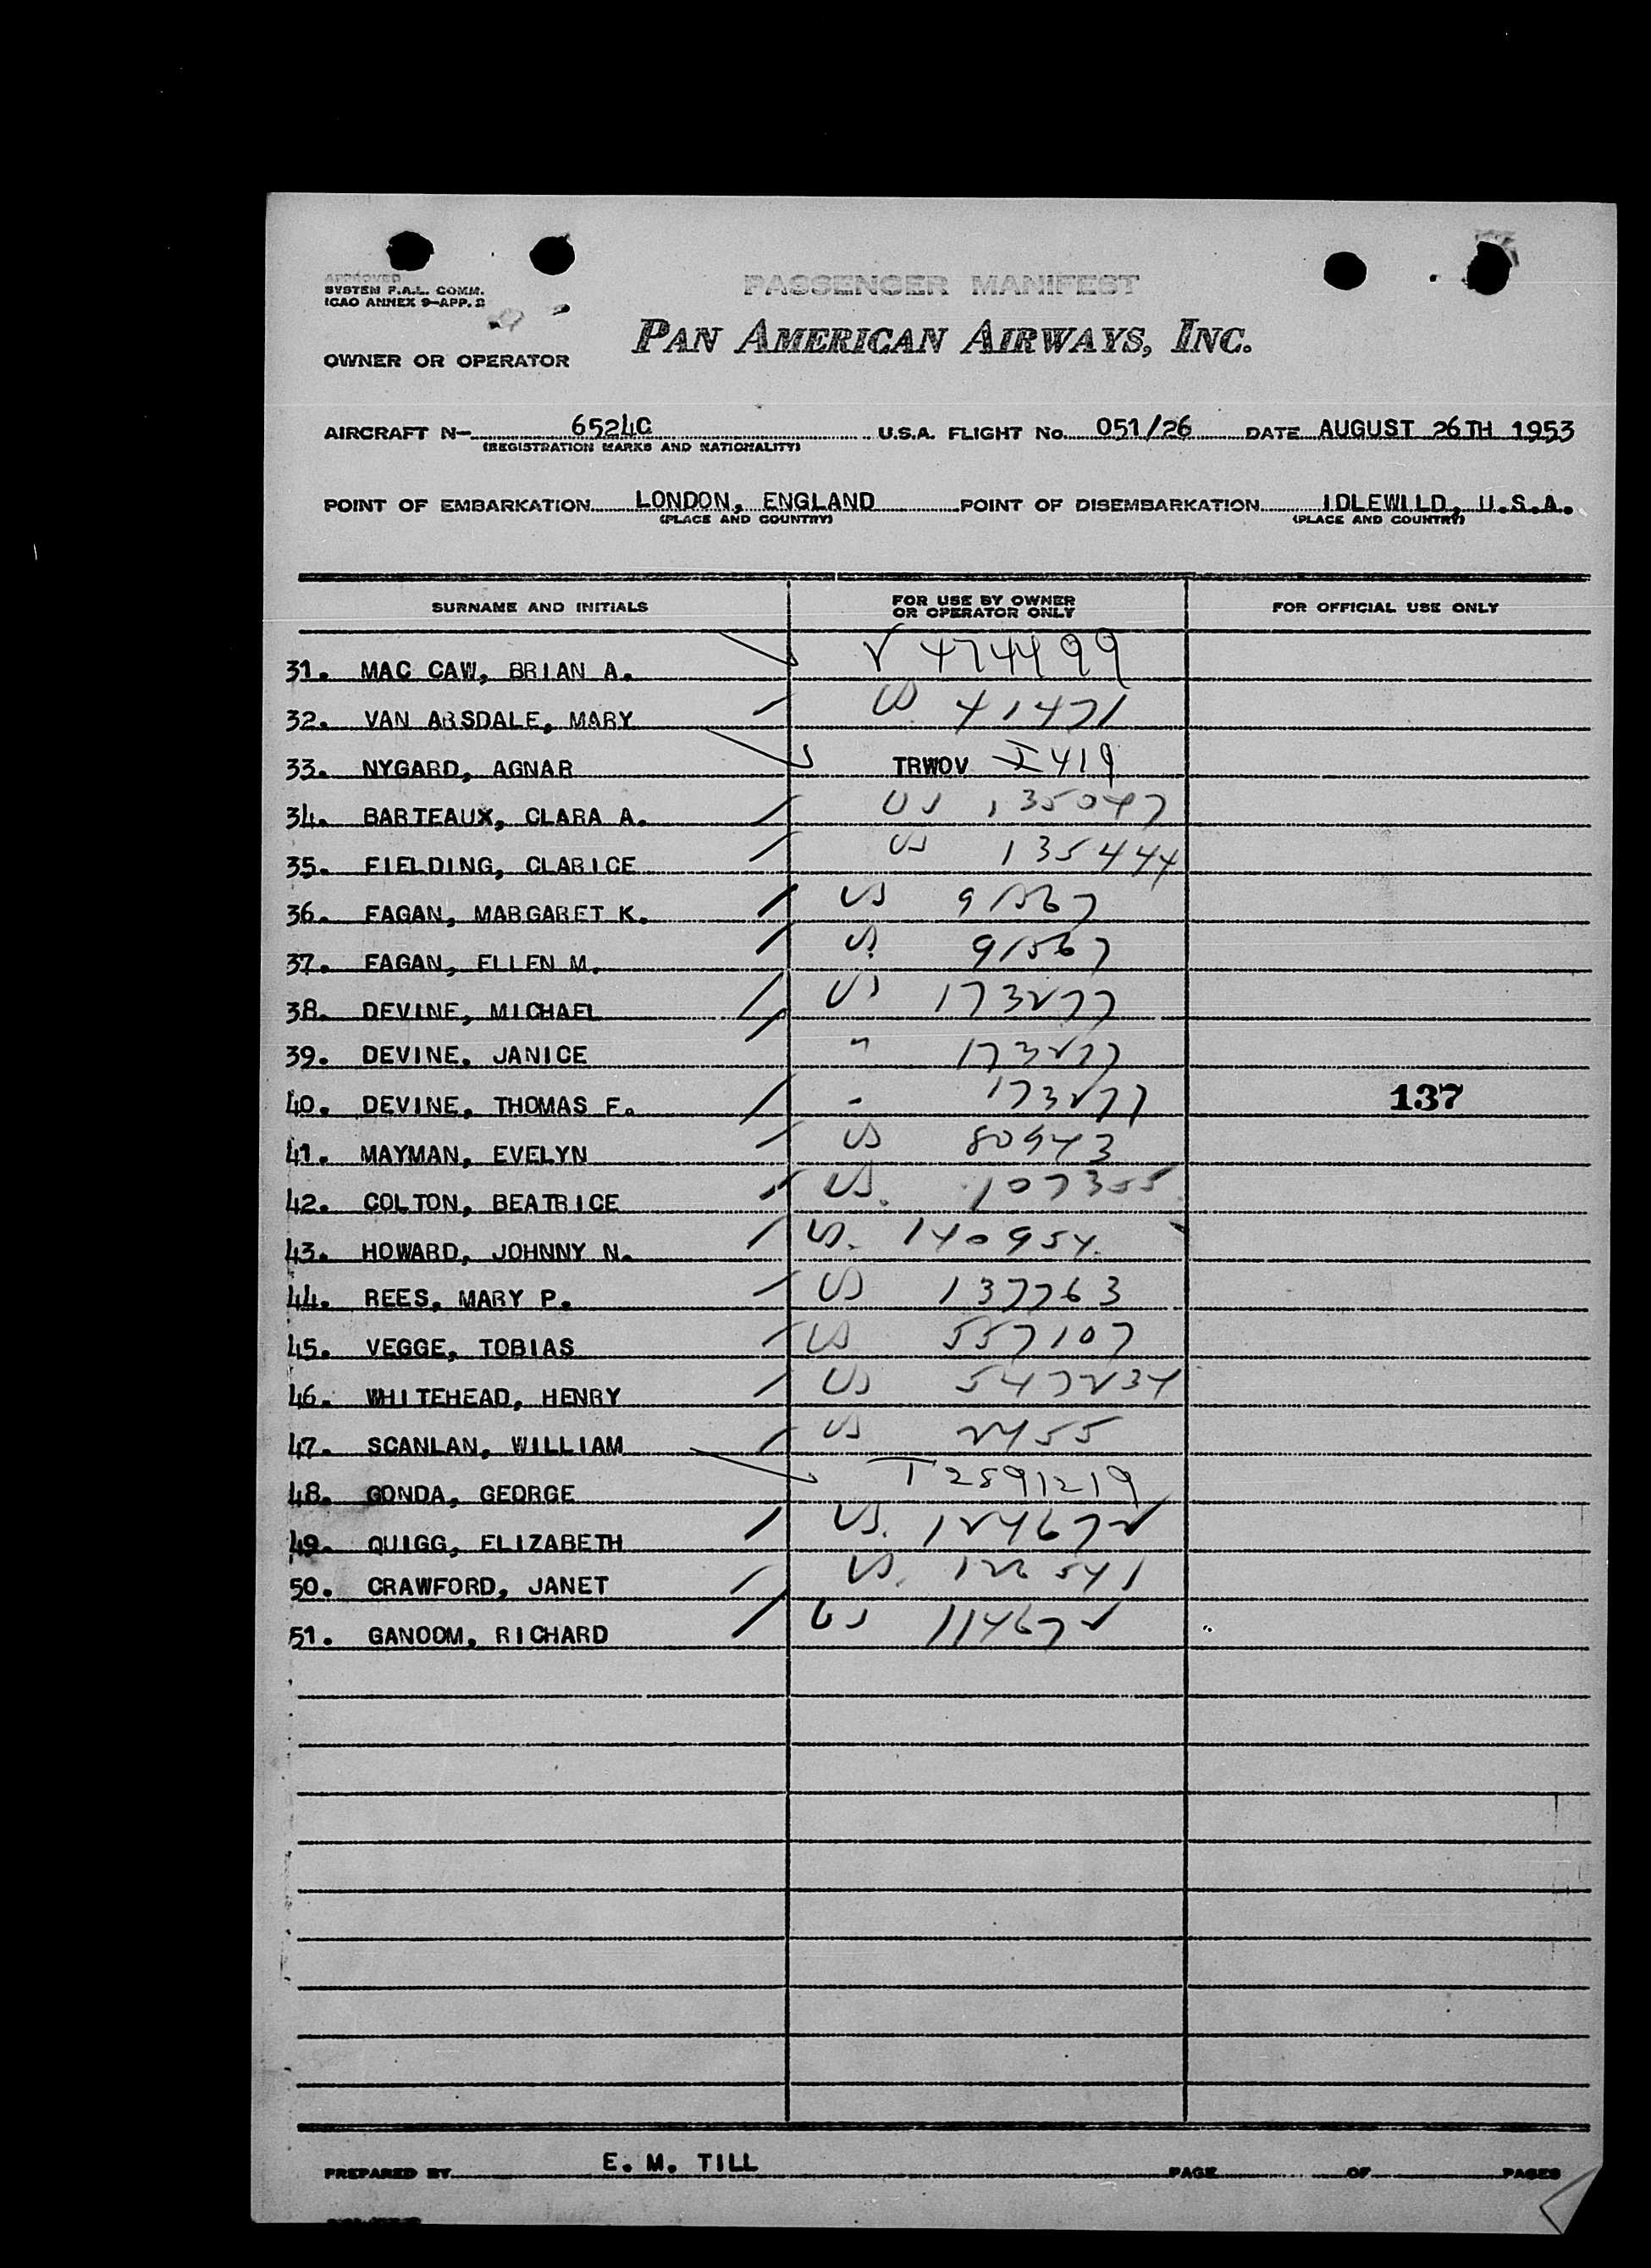 APPROVED
SYSTEM F.A.L. COMM.
ICAO ANNEX 9-APP. 2
PASSENGER MANIFEST
OWNER OR OPERATOR PAN AMERICAN AIRWAYS, INC.
AIRCRAFT N- 6524C U.S.A. FLIGHT No. 051/26 DATE AUGUST 26TH 1953
(REGISTRATION MARKS AND NATIONALITY)
POINT OF EMBARKATION LONDON, ENGLAND POINT OF DISEMBARKATION IDLEWILD, U.S.A.
(PLACE AND COUNTRY) (PLACE AND COUNTRY)
SURNAME AND INITIALS FOR USE BY OWNER OR OPERATOR ONLY FOR OFFICIAL USE ONLY
31. MAC CAW, BRIAN A. V 474499
32. VAN ARSDALE, MARY US 41471
33. NYGARD, AGNAR TRWOV I 419
34. BARTEAUX, CLARA A. US 135047
35. FIELDING, CLARICE US 135444
36. FAGAN, MARGARET K. US 91567
37. FAGAN, ELLEN M. US 91567
38. DEVINE, MICHAEL US 173277
39. DEVINE, JANICE " 173277
40. DEVINE, THOMAS F. - 173277 137
41. MAYMAN, EVELYN US 80943
42. COLTON, BEATRICE US. 107355
43. HOWARD, JOHNNY N. US. 140954
44. REES, MARY P. US 137763
45. VEGGE, TOBIAS US 557107
46. WHITEHEAD, HENRY US 547234
47. SCANLAN, WILLIAM US 2455
48. GONDA, GEORGE T 2891219
49. QUIGG, ELIZABETH US. 124672
50. CRAWFORD, JANET US. 122541
51. GANOOM, RICHARD US 114672
PREPARED BY E. M. TILL PAGE OF PAGES